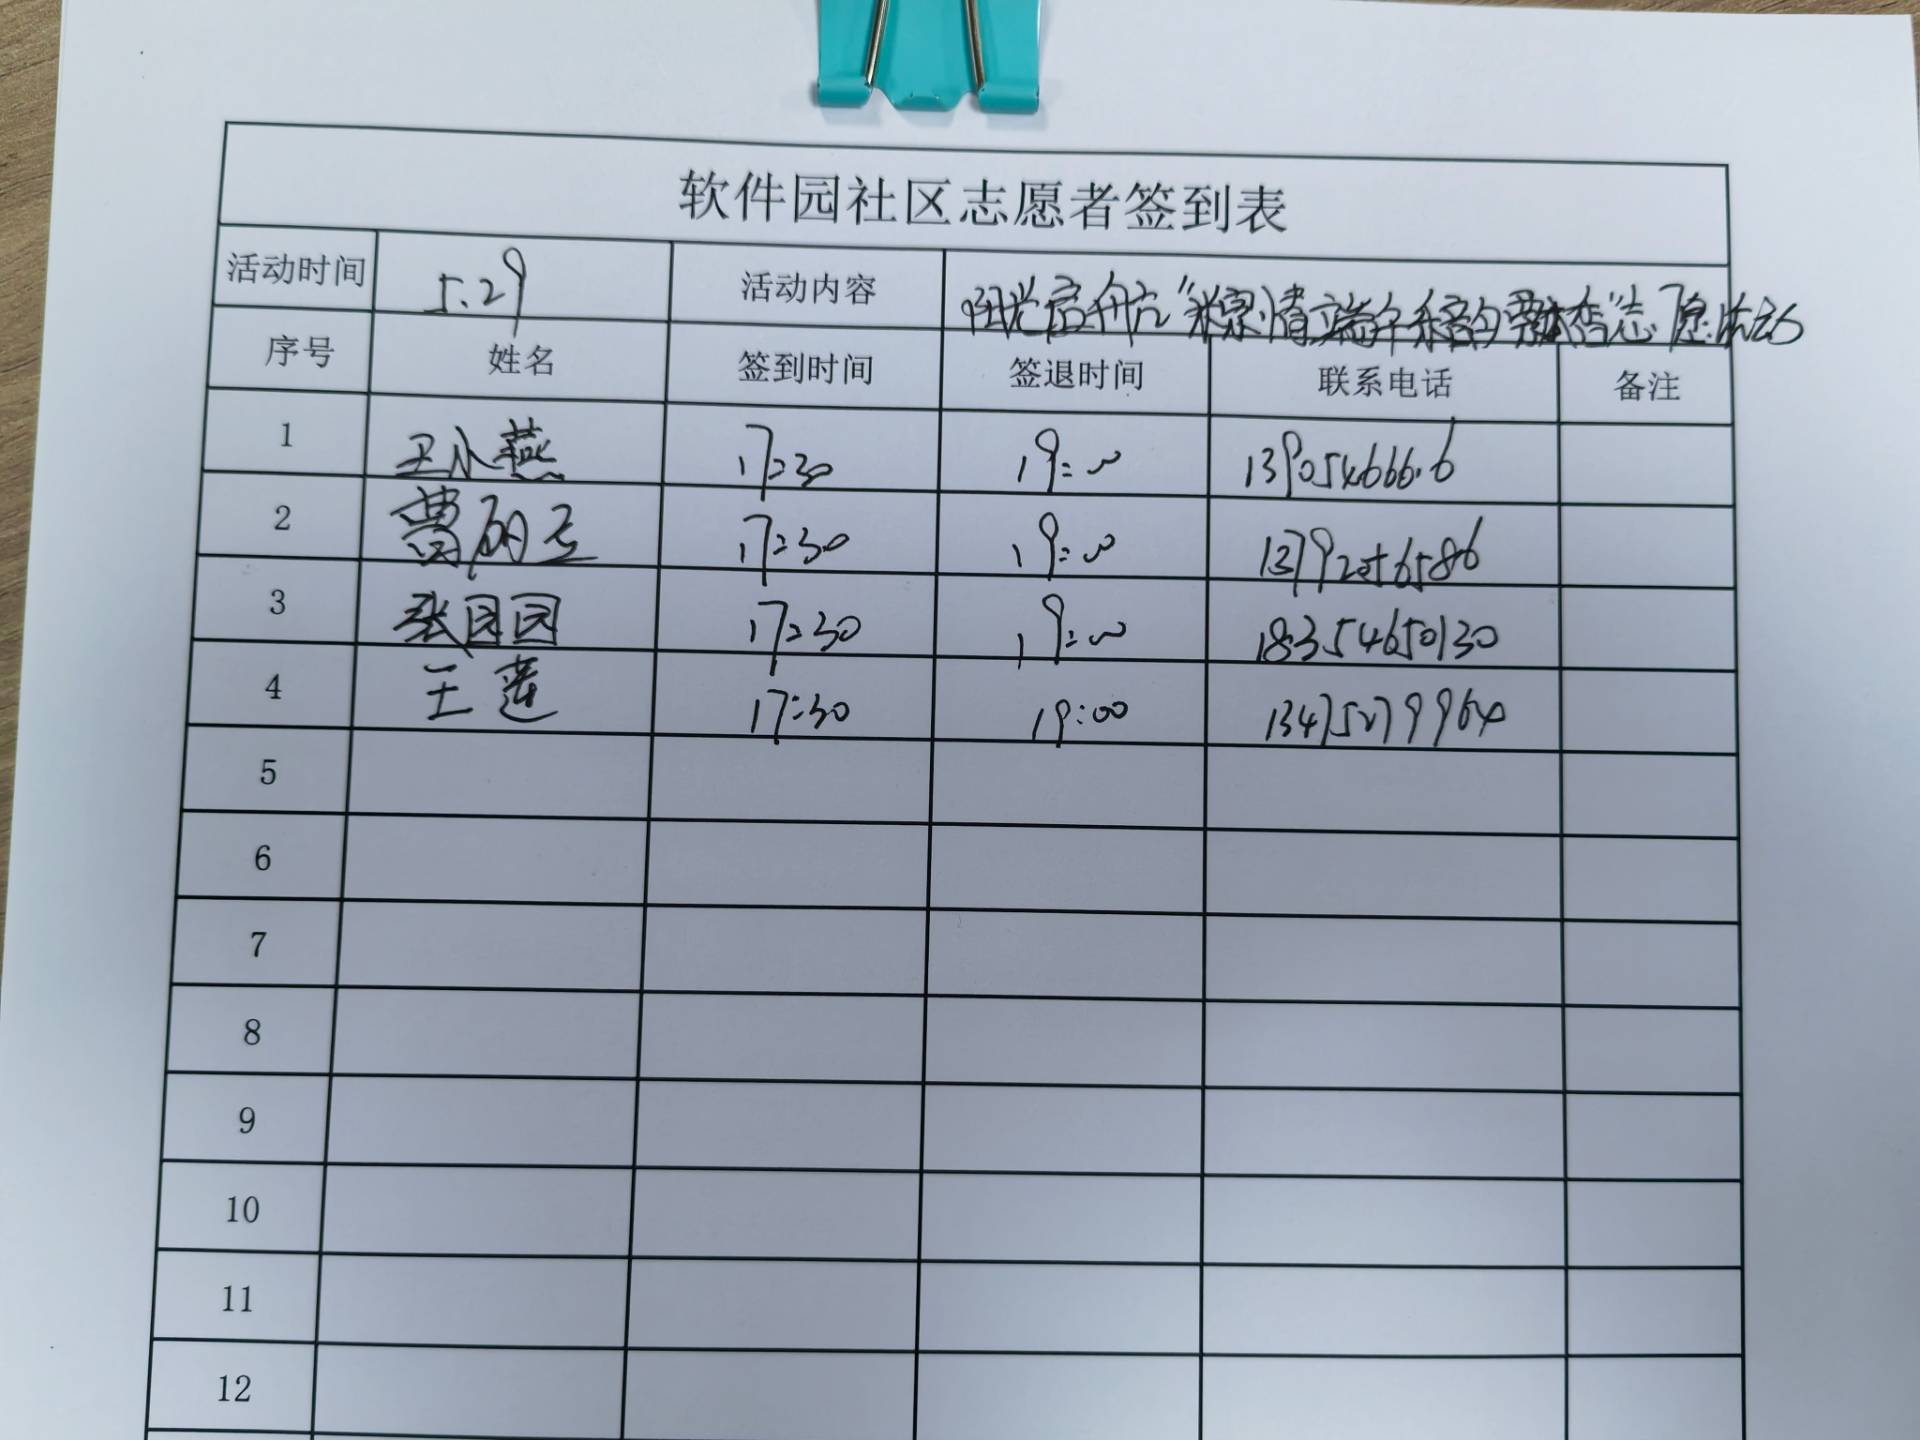 软件园社区志愿者签到表
活动时间 5.29 活动内容 阳光启航 "粽情端午 粽香"志愿活动
序号 姓名 签到时间 签退时间 联系电话 备注
1 王小燕 17:30 19:00
2 曹丽 17:30 19:00
3 张园园 17:30 19:00 18354650130
4 王莲 17:30 19:00
5
6
7
8
9
10
11
12